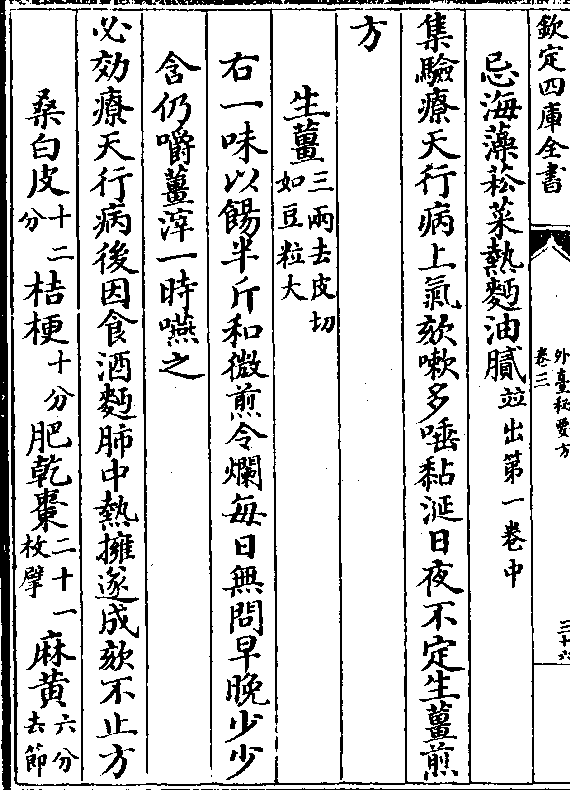 欽定四庫全書
外臺秘要方
卷三
三十六
忌海藻菘菜熱麵油膩並出第一卷中
集驗療天行病上氣欬嗽多唾黏涎日夜不定生薑煎
方
生薑三兩去皮切如豆粒大
右一味以餳半斤和微煎令爛每日無問早晚少少
含仍嚼薑滓一時嚥之
必効療天行病後因食酒麵肺中熱擁遂成欬不止方
桑白皮十二分 桔梗十分 肥乾棗二十一枚擘 麻黄六分去節